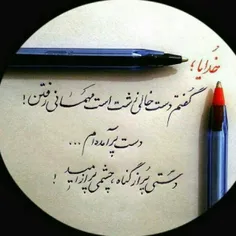 خدایا؛
گفتم دست خالی زشت است مهمانی رفتن!
دست پُر آمده ام ...
دستی پُر از گناه، چشمی پُر از امید!